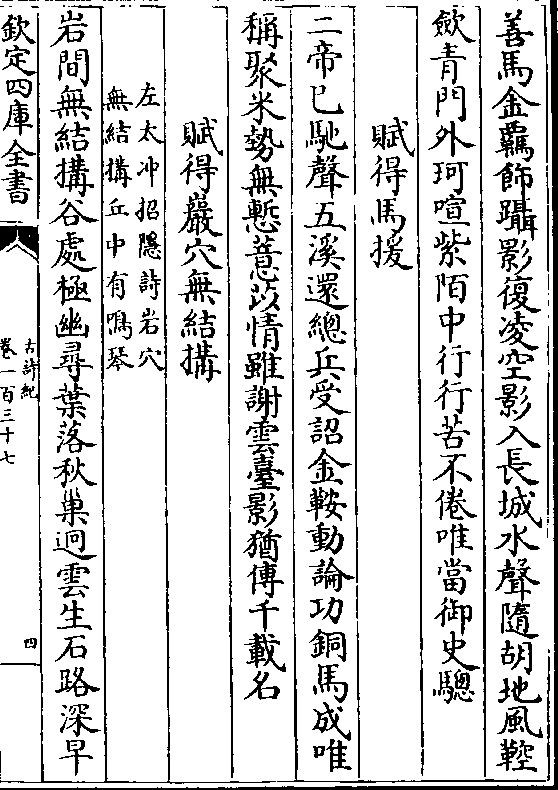 善馬金覊飾躡影復凌空影入長城水聲隨胡地風鞚
歛青門外珂喧紫陌中行行苦不倦唯當御史驄
賦得馬援
二帝已馳聲五溪還總兵受詔金鞍動論功銅馬成唯
稱聚米勢無慙薏苡情雖謝雲臺影猶傳千載名
賦得巖穴無結構
左太冲招隱詩岩穴
無結構丘中有鳴琴
岩間無結構谷處極幽尋葉落秋巢迥雲生石路深早
欽定四庫全書
古詩紀
卷一百三十七
四